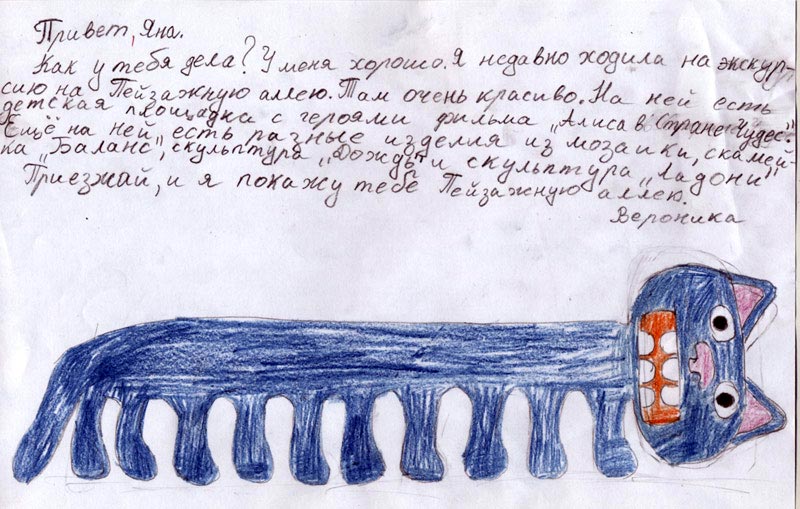 Привет, Яна.
Как у тебя дела? У меня хорошо. Я недавно ходила на экскур-
сию на Пейзажную аллею. Там очень красиво. На ней есть
детская площадка с героями фильма „Алиса в Стране Чудес".
Ещё на ней есть разные изделия из мозаики, скамей-
ка „Баланс", скульптура „Дождь" и скульптура „Ладони"
Приезжай, и я покажу тебе Пейзажную аллею.
Вероника